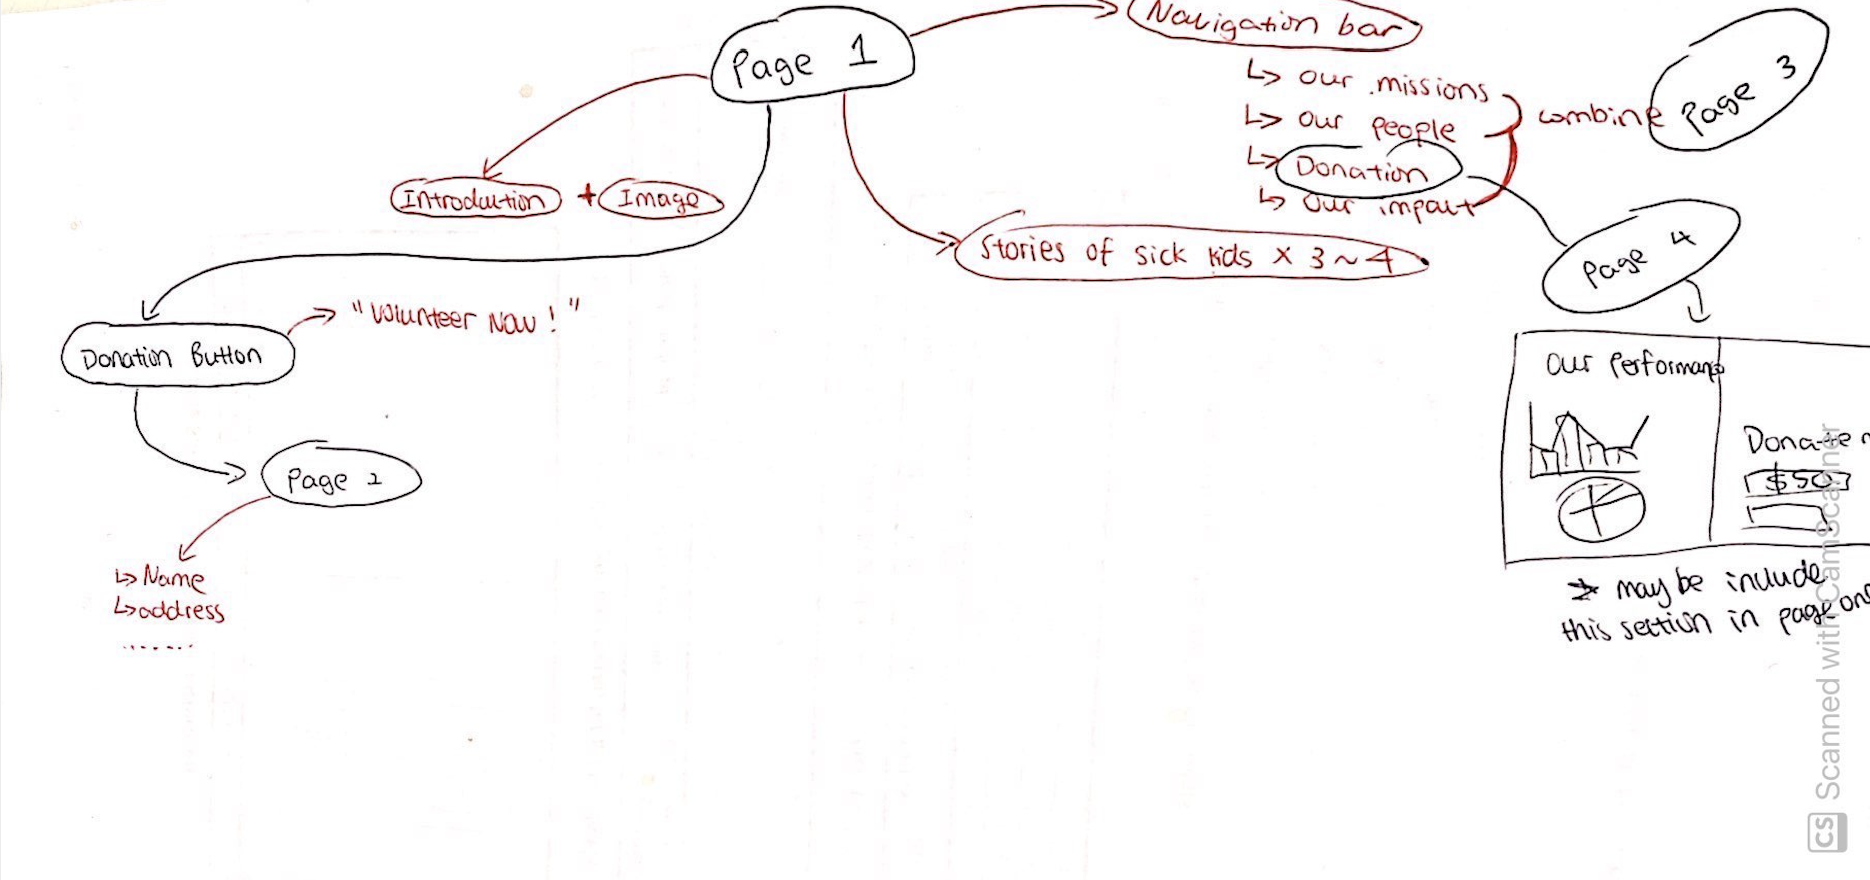 Page 1
Navigation bar
↳ our missions
↳ our people
↳ Donation
↳ our impact
combine
Page 3
Introduction + Image
Stories of sick kids x 3 ~ 4
Page 4
Donation Button
"Volunteer Now!"
Page 2
↳ Name
↳ address
.......
Our Performance
Donate
$50
→ may be include
this section in page one
CS Scanned with CamScanner